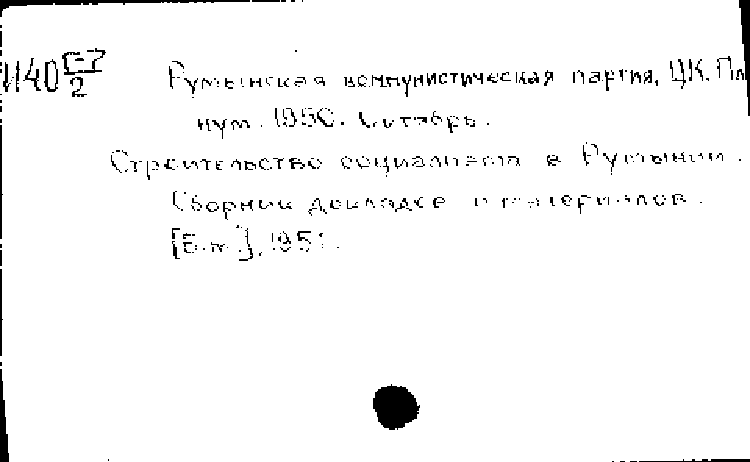 И40 Г-7/2
Румынская коммунистическая партия, ЦК. Пле
нум. 1950. Октябрь.
Строительство социализма в Румынии.
Сборник докладов и материалов.
[Б.м.], 1951.